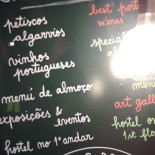 petiscos
algarvios
vinhos
portugueses
menú de almoço
exposições &
eventos
hotel no 1º andar
best port
wines
special
al
menu
art gall
hotel o
1st flo